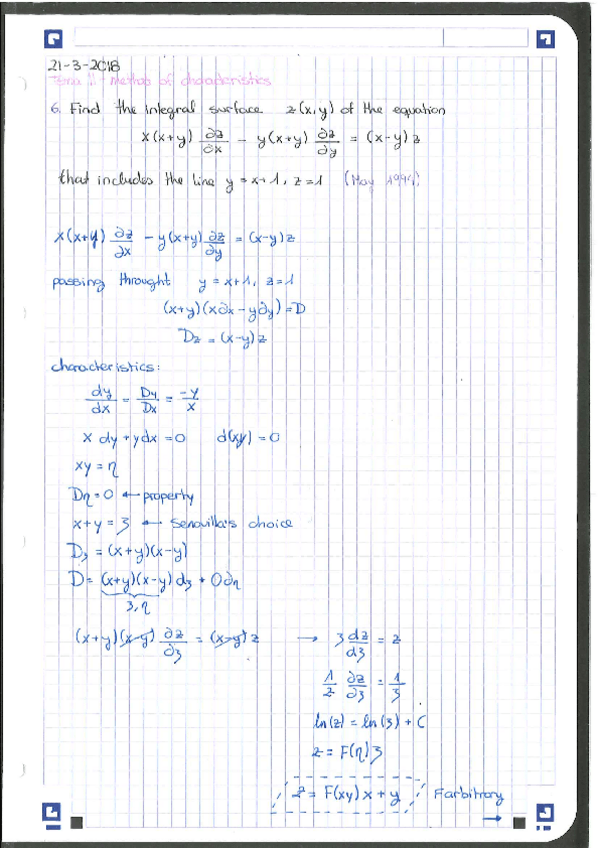 21-3-2018
Tema II - Method of characteristics
6. Find the integral surface z(x,y) of the equation
x(x+y) ∂z/∂x - y(x+y) ∂z/∂y = (x-y)z
that includes the line y=x+1, z=1 (May 1994)
x(x+y) ∂z/∂x - y(x+y) ∂z/∂y = (x-y)z
passing throught y=x+1, z=1
(x+y)(x∂x - y∂y) = D
Dz = (x-y)z
characteristics:
dy/dx = Dy/Dx = -y/x
x dy + y dx = 0 d(xy) = 0
xy = η
Dη = 0 ← property
x+y = ξ ← Senovilla's choice
Dξ = (x+y)(x-y)
D = (x+y)(x-y) dξ + 0∂η
ξ, η
(x+y)(x-y) ∂z/∂ξ = (x-y)z → ξ dz/dξ = z
1/z ∂z/∂ξ = 1/ξ
ln(z) = ln(ξ) + C
z = F(η)ξ
z = F(xy)x+y F arbitrary
→